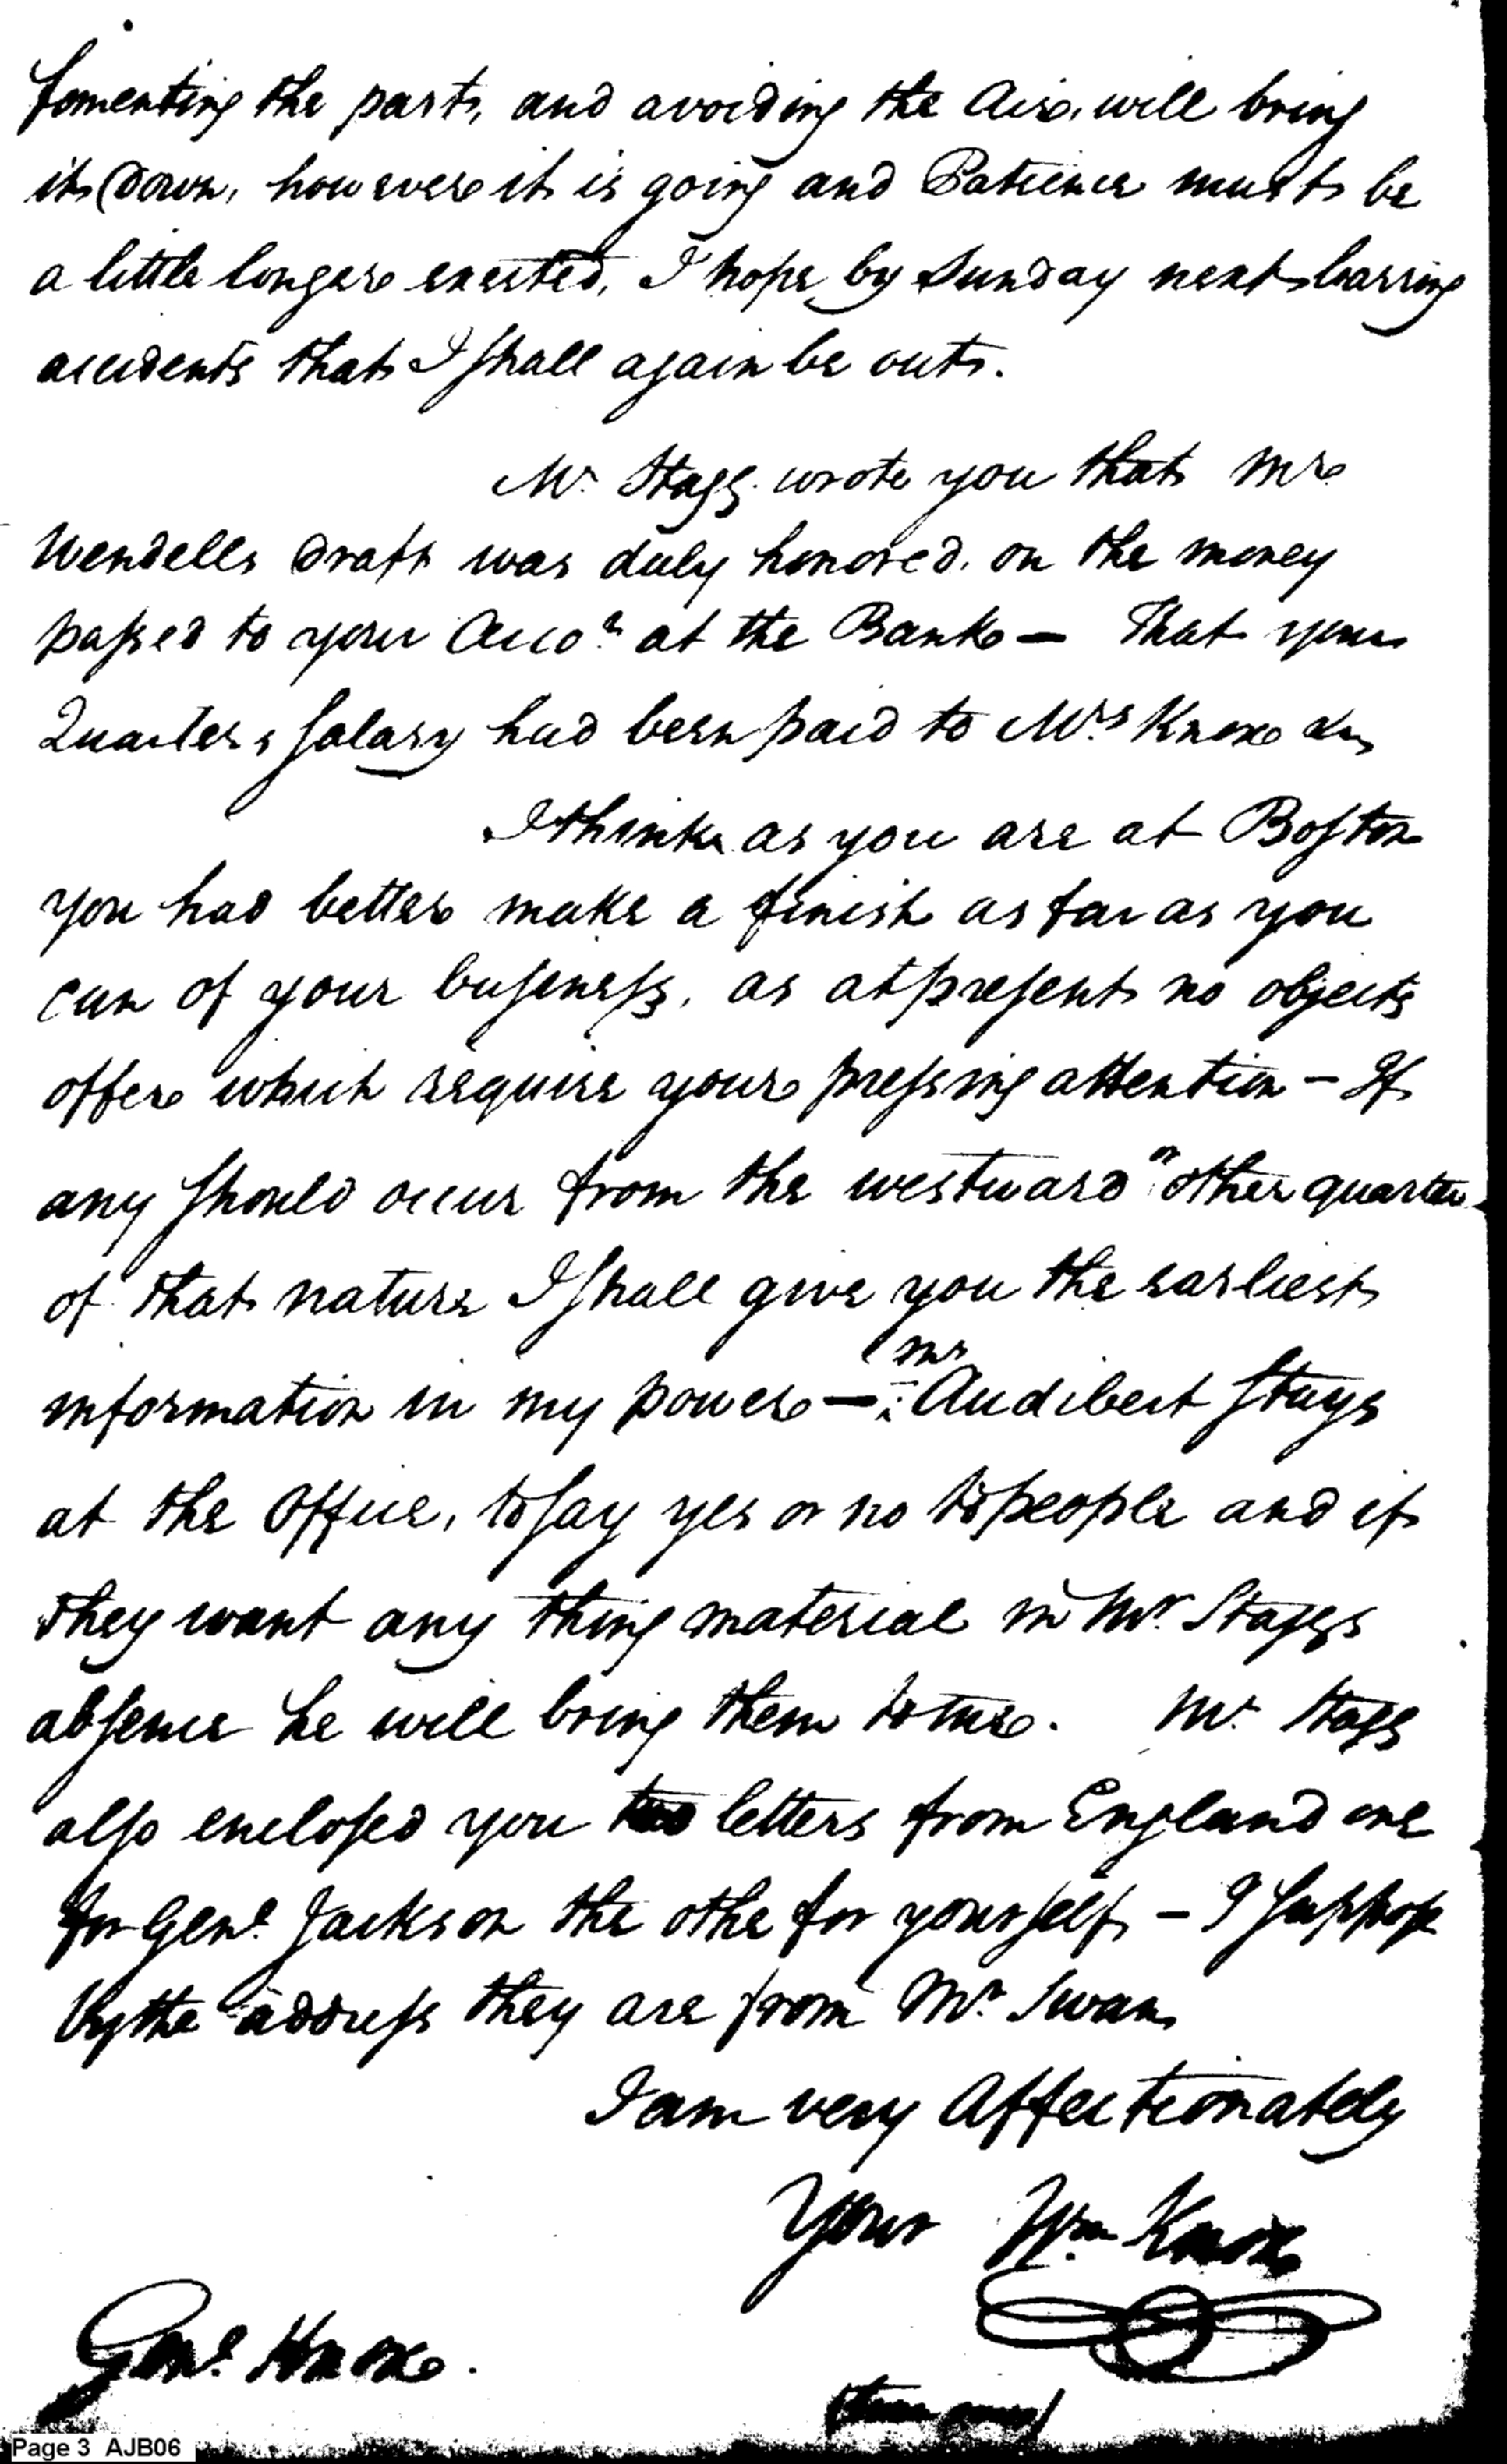 fomenting the part, and avoiding the Air, will bring
it down, however it is going and Patience must be
a little longer exerted, I hope by Sunday next barring
accidents that I shall again be out.
Mr. Stagg wrote you that Mr
Wendells Draft was duly honored, on the money
passed to your Acco.t at the Bank — That your
Quarters Salary had been paid to Mrs Knox &c
I think as you are at Boston
you had better make a finish as far as you
can of your business, as at present no objects
offer which require your pressing attention — If
any should occur from the westward or other quarter
of that nature I shall give you the earliest
information in my power — Mr Audibert stays
at the Office, to say yes or no to people and if
they want any thing material in Mr. Staggs
absence he will bring them to me. Mr. Stagg
also enclosed you two letters from England one
for Genl. Jackson the othe for yourself — I suppose
by the address they are from Mr. Swan
I am very Affectionately
Your Wm Knox
Genl. Knox.
(turn over)
Page 3 AJB06